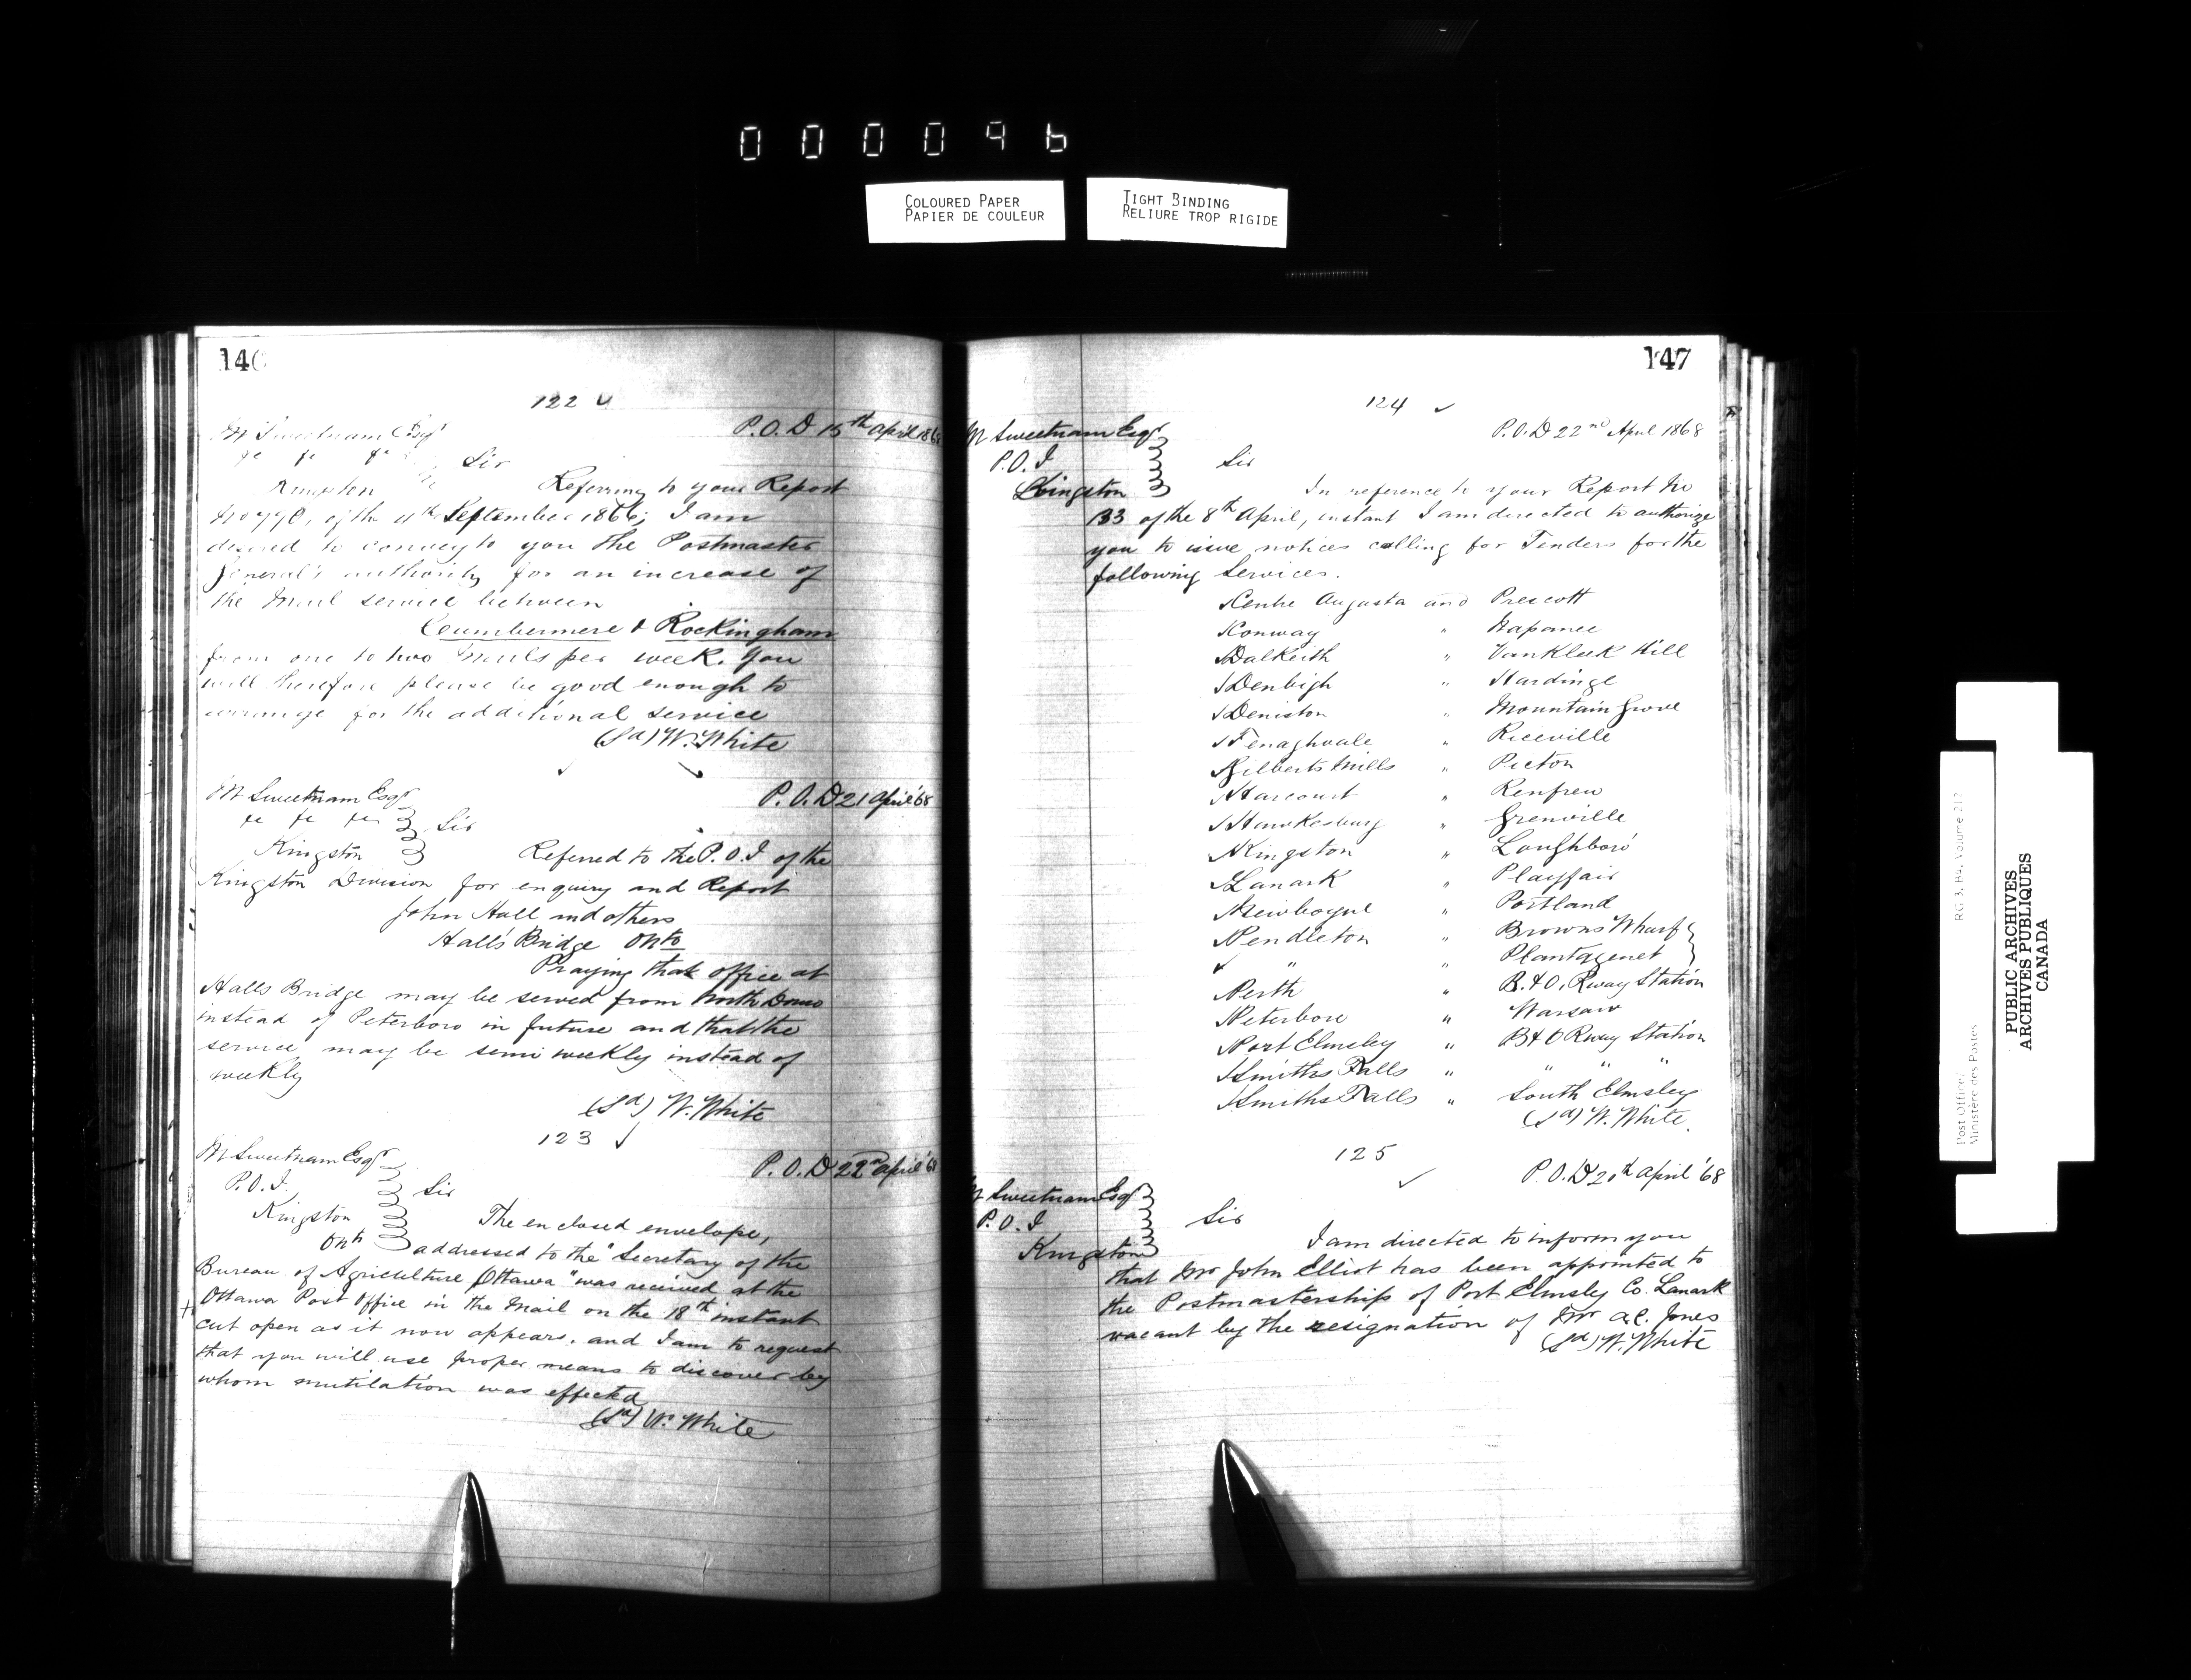 000096
COLOURED PAPER
PAPIER DE COULEUR
TIGHT BINDING
RELIURE TROP RIGIDE
146
122
M Sweetnam Esqr
P.O.D 15th April 1868
Sir
Kingston
Referring to your Report
of the 4th September 1866; I am
desired to convey to you the Postmaster
General's authority for an increase of
the Mail service between
Coumbermere & Rockingham
from one to two Mails per week. You
will therefore please be good enough to
arrange for the additional service
(Sd) W. White
M Sweetnam Esqr
P.O.D 21 April '68
Sir
Kingston
Referred to the P.O.I of the
Kingston Division for enquiry and Report
John Hall and others
Hall's Bridge Onto
Praying that office at
Halls Bridge may be served from North Douro
instead of Peterboro in future and that the
service may be semi weekly instead of
weekly
(Sd) W. White
123
M Sweetnam Esqr
P.O.D 22nd April '68
P.O.I.
Sir
Kingston
Onto
The enclosed envelope,
addressed to the "Secretary of the
Bureau of Agriculture Ottawa" was received at the
Ottawa Post Office in the Mail on the 18th instant
cut open as it now appears, and I am to request
that you will use proper means to discover by
whom mutilation was effected
(Sd) W. White
147
124
M Sweetnam Esqr
P.O.D 22nd April 1868
P.O.I
Sir
Kingston
In reference to your Report No
133 of the 8th April, instant I am directed to authorize
you to issue notices calling for Tenders for the
following Services.
Centre Augusta and Prescott
Conway " Napanee
Dalkeith " VanKleek Hill
Denbigh " Hardinge
Deniston " Mountain Grove
Fenaghvale " Riceville
Gilberts Mills " Picton
Harcourt " Renfrew
Hawkesbury " Grenville
Kingston " Loughboro'
Lanark " Playfair
Newboyne " Portland
Pendleton " Browns Wharf
" " Plantagenet
Perth " B.&O. Rway Station
Peterboro " Warsaw
Port Elmsley " B&O Rway Station
Smiths Falls " " " "
Smiths Falls " South Elmsley
(Sd) W. White.
125
P.O.D 20th April '68
M Sweetnam Esqr
P.O.I
Sir
Kingston
I am directed to inform you
that Mr John Elliot has been appointed to
the Postmastership of Port Elmsley Co. Lanark
vacant by the resignation of Mr A.C. Jones
(Sd) W. White
Post Office/
Ministère des Postes
RG 3, B4, Volume 212
PUBLIC ARCHIVES
ARCHIVES PUBLIQUES
CANADA